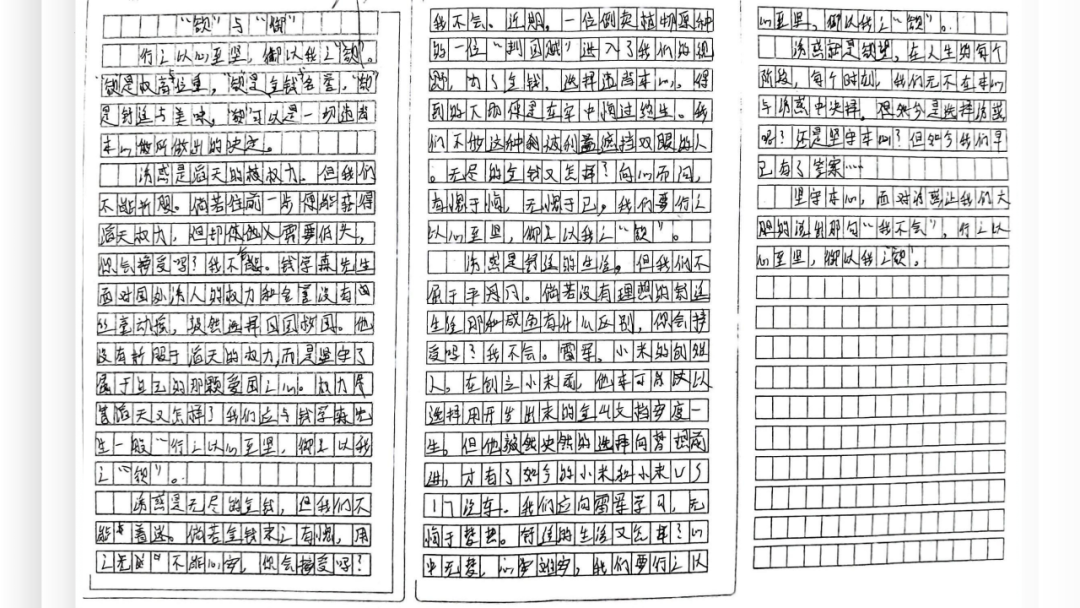 “欲”与“御”
行之以心至坚，御以我之“欲”。
“欲是权高位重，“欲是金钱名誉，“欲
是舒适与美味，“欲可以是一切违背
本心做所做出的决定。
诱惑是滔天的权力。但我们
不能折服。倘若往前一步便能获得
滔天权力，但却需要低头，
你会接受吗？我不能。钱学森先生
面对国外诱人的权力和金钱没有
丝毫动摇，毅然选择回国救国。他
没有折服于滔天的权力，而是坚守了
属于自己的那颗爱国之心。权力尽
管滔天又怎样？我们应与钱学森先
生一般“行之以心至坚，御之以我
之“欲”。
诱惑是无尽的金钱，但我们不
能着迷。倘若金钱来之有愧，用
之无不能心安，你会接受吗？
我不会。近期，一位倒卖植物原种
的一位“判国贼”进入了我们的视
野，为了金钱，选择违背本心，得
到的不过便是在牢中悔过终生。我
们不做这种被利益底挡双眼的人
。无尽的金钱又怎样？向心而问，
有愧于悔，无愧于己。我们要行之
以心至坚，御之以我之“欲”。
诱惑是舒适的生活。但我们不
属于平凡。倘若没有理想的舒适
生活那和咸鱼有什么区别，你会接
受吗？我不会。雷军，小米的创始
人。在创立小米前，他本可以
选择用开发出来的金山文档安度一
生。但他毅然决然的选择向梦想前
进，才有了如今的小米和小米US
17汽车。我们应向雷军学习，无
悔于梦想。舒适的生活又怎样？心
中无梦，心安难安，我们要行之以
心至坚，御以我之“欲”。
诱惑就是欲望，在人生的每个
阶段，每个时刻，我们无不在本心
与诱惑中抉择。但终究是选择诱惑
吗？还是坚守本心？但如今我们早
已有了答案…
坚守本心，面对诱惑让我们大
胆的说出那句“我不会”，行之以
心至坚，御以我之“欲”。